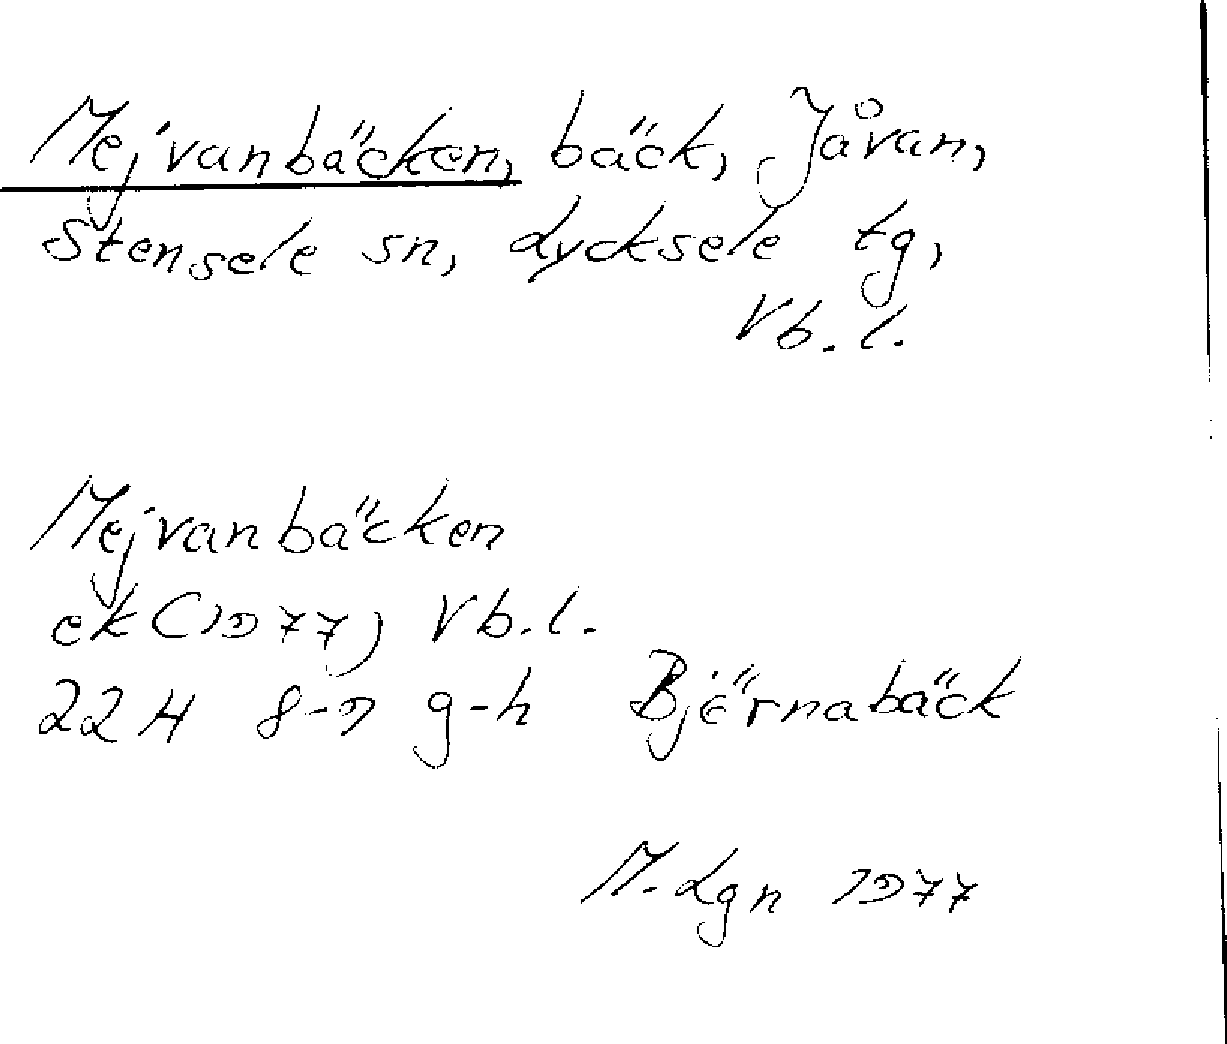 Mejvanbäcken, bäck, Jåvan,
Stensele sn, Lycksele tg,
Vb. l.
Mejvanbäcken
ek (1977) Vb.l.
22H 8-9 g-h Björnabäck
M. Lgn 1977